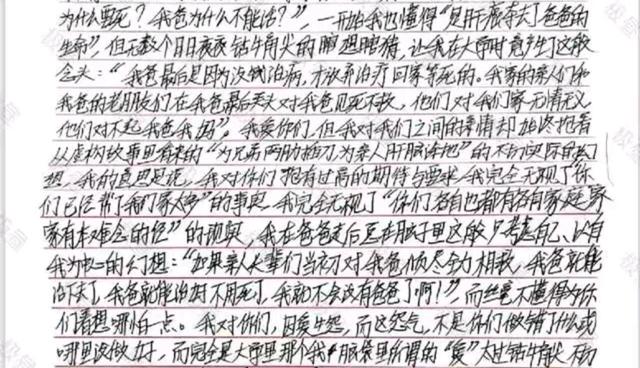 为什么要死？我爸为什么不能活？”，一开始我也懂得“是肝癌夺去了爸爸的
生命”，但无数个日日夜夜钻牛角尖的瞎想瞎猜，让我在大学时竟产生了这般
念头：“我爸最后是因为没钱治病，才放弃治疗回家等死的。我家的亲人们和
我爸的老朋友们在我爸最后关头对我爸见死不救，他们对我们家无情无义
他们对不起我爸我妈”。我爱你们，但我对我们之间的事情却始终抱着
从虚构故事里看来的“为兄弟两肋插刀，为亲人肝脑涂地”的不切实际的幻
想，我的意思是说，我对你们抱有过高的期待与要求，我完全无视了“你
们已经帮了我们家太多”的事实，我完全无视了“你们各自也都有各自家庭，家
家有本难念的经”的现实，我在爸爸走后总在脑子里这般只考虑自己、以自
我为中心的幻想：“如果亲人长辈们当初对我爸倾尽全力相救，我爸就能
治下去了，我爸就能治好不用死了，我就不会没有爸爸了啊！”，而丝毫不懂得为你
们着想哪怕一点。我对你们，因爱生怨，而这怨气，不是你们做错了什么或
哪里没做好，而完全是大学里那个我脑袋里所谓的“爱”太过钻牛角尖，不切
极目